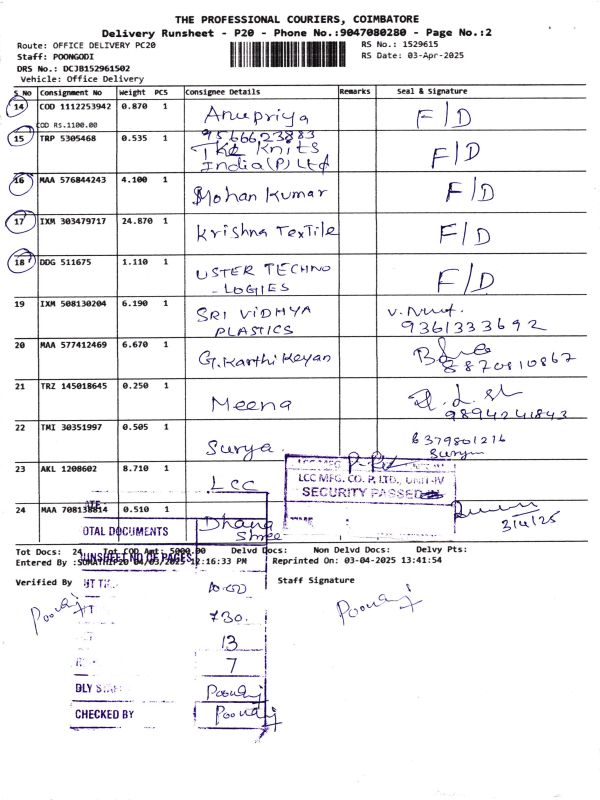 THE PROFESSIONAL COURIERS, COIMBATORE
Delivery Runsheet - P20 - Phone No.:9047080280 - Page No.:2
Route: OFFICE DELIVERY PC20
RS No.: 1529615
Staff: POONGODI
RS Date: 03-Apr-2025
DRS No.: DCJB152961502
Vehicle: Office Delivery
S No Consignment No Weight PCS Consignee Details Remarks Seal & Signature
14 COD 1112253942 0.870 1 Anupriya F/D
COD RS.1100.00
9566623883
15 TRP 5305468 0.535 1 TKE Knits F/D
India(P) Ltd
16 MAA 576844243 4.100 1 Mohan Kumar F/D
17 IXM 303479717 24.870 1 Krishna TexTile F/D
18 DDG 511675 1.110 1 USTER TECHNO F/D
-LOGIES
19 IXM 508130204 6.190 1 SRI VIDHYA
PLASTICS 9361333692
20 MAA 577412469 6.670 1 G.Karthi Keyan 8870810867
21 TRZ 145018645 0.250 1 Meena 9894241843
22 TMI 30351997 0.505 1 Surya. 6379801216
Surya
23 AKL 1208602 8.710 1 LCC
LCC MFG. CO. P. LTD., UNIT-IV
SECURITY PASSED
24 MAA 708138814 0.510 1 Dhana
Shree
TIME
3/4/25
OTAL DOCUMENTS
Tot Docs: 24 Tot COD Amt: 5000.00 Delvd Docs: Non Delvd Docs: Delvy Pts:
UNSHEET NO OF PAGES
Entered By :SUMATHIP20 04/03/2025 12:16:33 PM Reprinted On: 03-04-2025 13:41:54
Verified By Staff Signature
10.00
Poongj Poongj
730
13
7
DLY STAFF Poongj
CHECKED BY Poongj